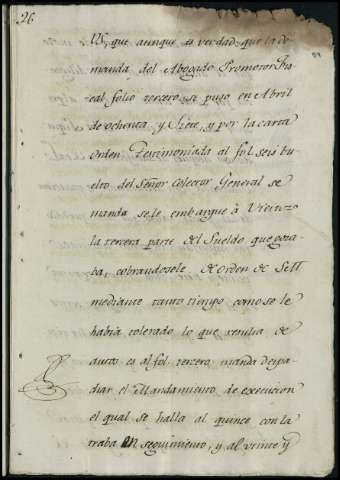 26
VS, que aunque es verdad, que la de
manda, del Abogado Promotor Fis
al folio tercero se puso en Abril
de ochenta, y Siete, y por la carta
orden Testimoniada al fol. seis bu
elto, del Señor Colector General se
manda se le embargue à
la tercera parte del Sueldo que goza
ba, cobrandosele de orden de
mediante tanto tiempo como se le
habia tolerado lo que resulta de
autos es al fol. tercero, manda despa
char el Mandamiento de execucion
el qual se halla al quince con la
traba en seguimiento, y al veinte y